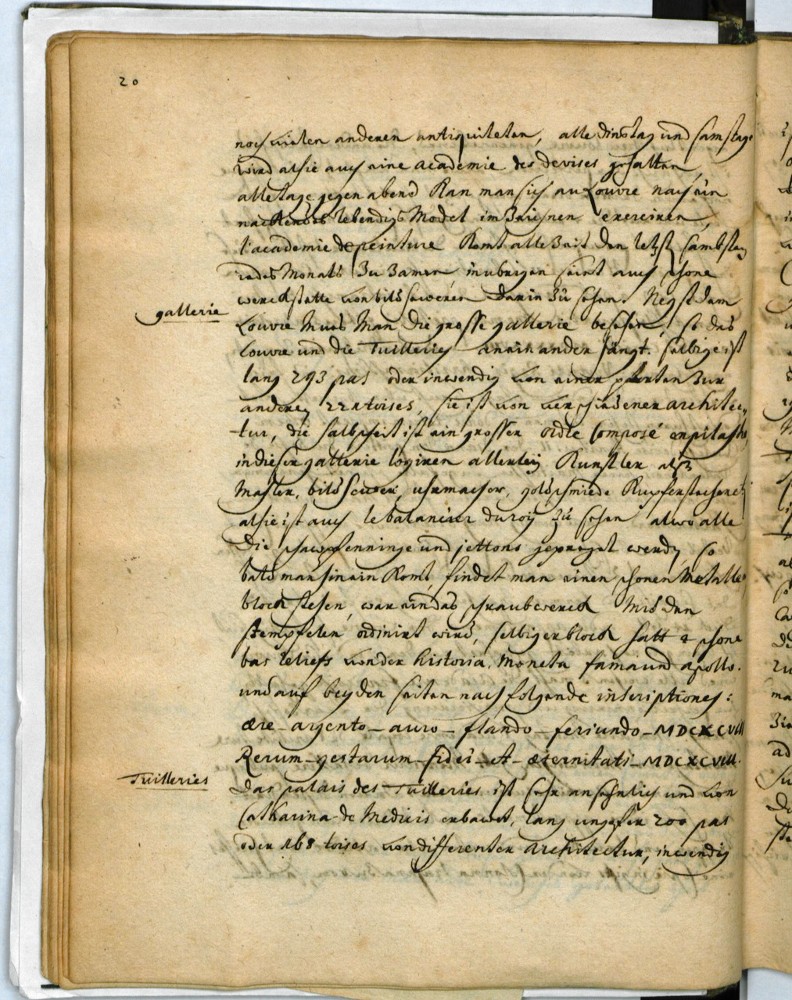 20
noch vielen anderen antiquiteten, alle dinstag und samstag
wird alhie auch eine academie des devises gehalten,
alle tage gegen abend kan man sich au Louvre nach ein
nackendes lebendigs Model im Zeichnen exerciren,
l'academie de peinture komt alle Zeit den letst sambstag
iedes Monats Zu Zamen in übrigen seint auch schone
werckstatte von bildhaweren darin Zu sehen. Negst dem
gallerie
Louvre mues Man die grosse gallerie besehen, so das
Louvre und die Tuilleries an ein ander hängt. selbige ist
lang 293 pas oder inwendig von einer pforten Zur
anderen toises, sie ist von verschiedener architec,,
-tur, die halbscheit ist ein grosser ordre composé
in dieser gallerie logiren allerley Kunstler alß
Mahler, bildhawer, uhrmacher, goldschmiede Kupferstecher
alhie ist auch le balancier du roy zu sehen alwo alle
die schawpfenninge und jettons gepreget werden, so
bald man hinein komt, findet man einen schonen Metallen
block stehen, war ein das schraubwerck Mit den
stempfelen ordinirt wird, selbiger block hatt 4 schone
bas reliefs von der historia, moneta fama und apollo.
und auf beyden seiten nach folgende inscriptiones:
ære - argento - auro - flando - feriundo - MDCXCVIII
Rerum - gestarum - fidei - et - æternitati - MDCXCVIII.
Tuilleries
Das palais des Tuilleries ist sehr ansehnlich und von
Catharina de Medicis erbawet, lang ungefer 200 pas
oder 168 toises von differenter architectur, inwendig